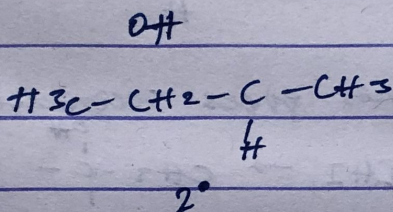 OH
H3C - CH2 - C - CH3
H
2°